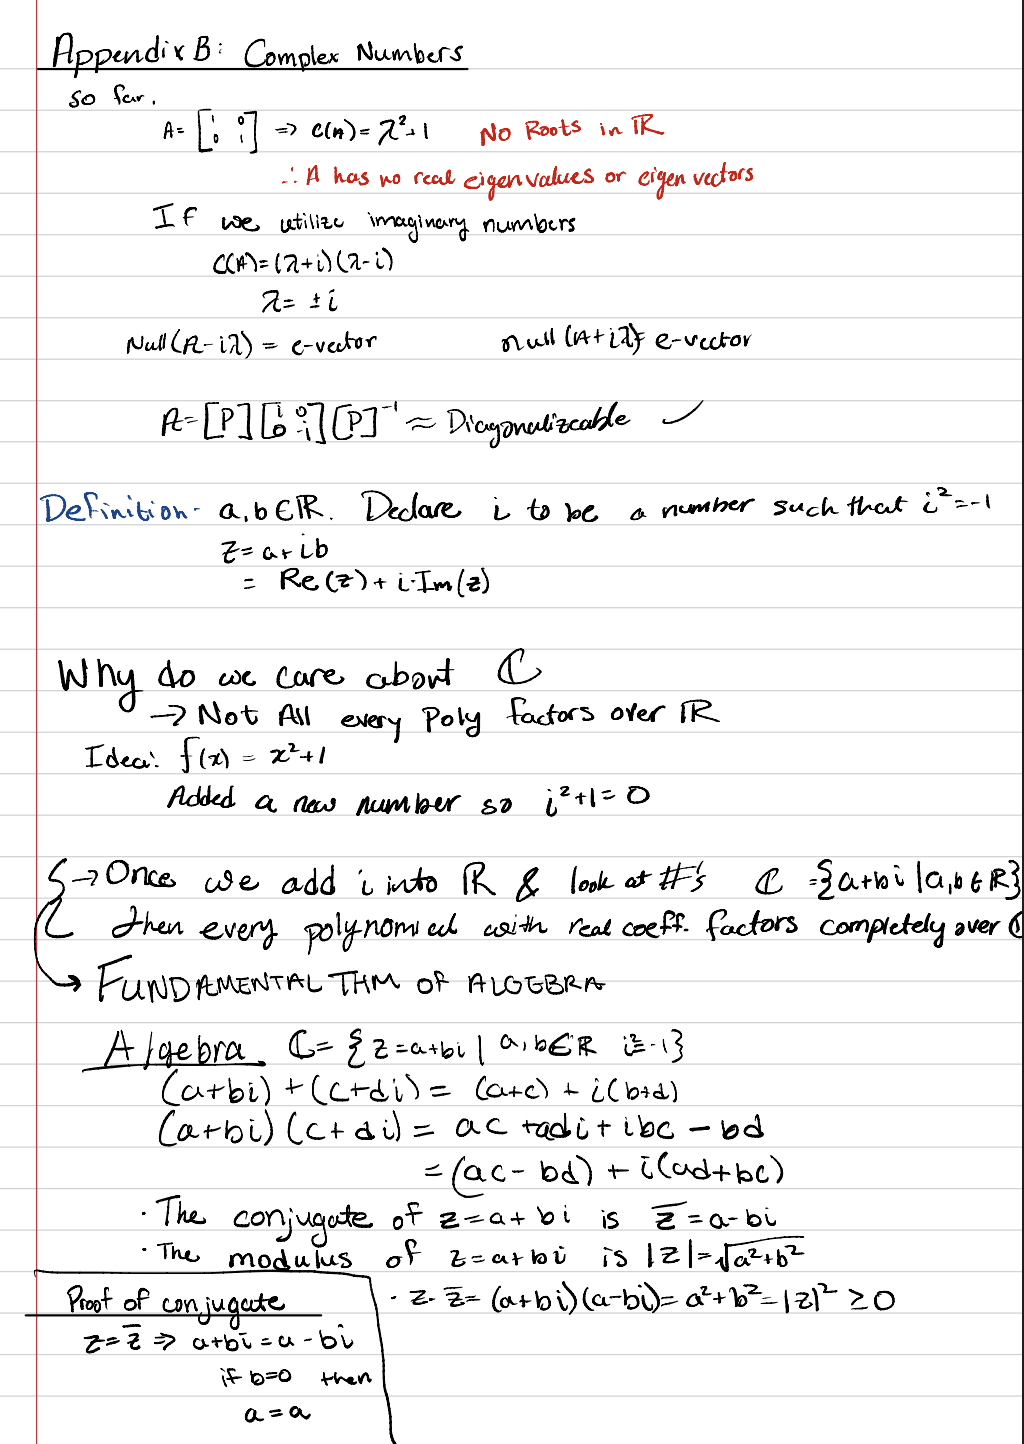 Appendix B: Complex Numbers
so far.
A= [1 0 0 1] => C(A)= λ²+1 No Roots in ℝ
∴ A has no real eigenvalues or eigen vectors
If we utilize imaginary numbers
C(A)=(λ+i)(λ-i)
λ= ±i
Null(A-iλ) = e-vector null(A+iλ)= e-vector
A=[P][i 0 0 -i][P]⁻¹ ≈ Diagonalizeable ✓
Definition- a,b∈ℝ. Declare i to be a number such that i²=-1
z=a+ib
= Re(z)+i·Im(z)
Why do we care about ℂ
→ Not All every Poly factors over ℝ
Idea: f(x) = x²+1
Added a new number so i²+1=0
→ Once we add i into ℝ & look at #'s ℂ ={a+bi |a,b∈ℝ}
then every polynomial with real coeff. factors completely over ℂ
→ FUNDAMENTAL THM OF ALGEBRA
Algebra. ℂ= {z=a+bi | a,b∈ℝ i²=-1}
(a+bi)+(c+di)= (a+c)+i(b+d)
(a+bi)(c+di)= ac+adi+ibc-bd
=(ac-bd)+i(ad+bc)
· The conjugate of z=a+bi is z̅=a-bi
· The modulus of z=a+bi is |z|=√a²+b²
· z·z̅= (a+bi)(a-bi)=a²+b²=|z|² ≥0
Proof of conjugate
z=z̅ => a+bi=a-bi
if b=0 then
a=a